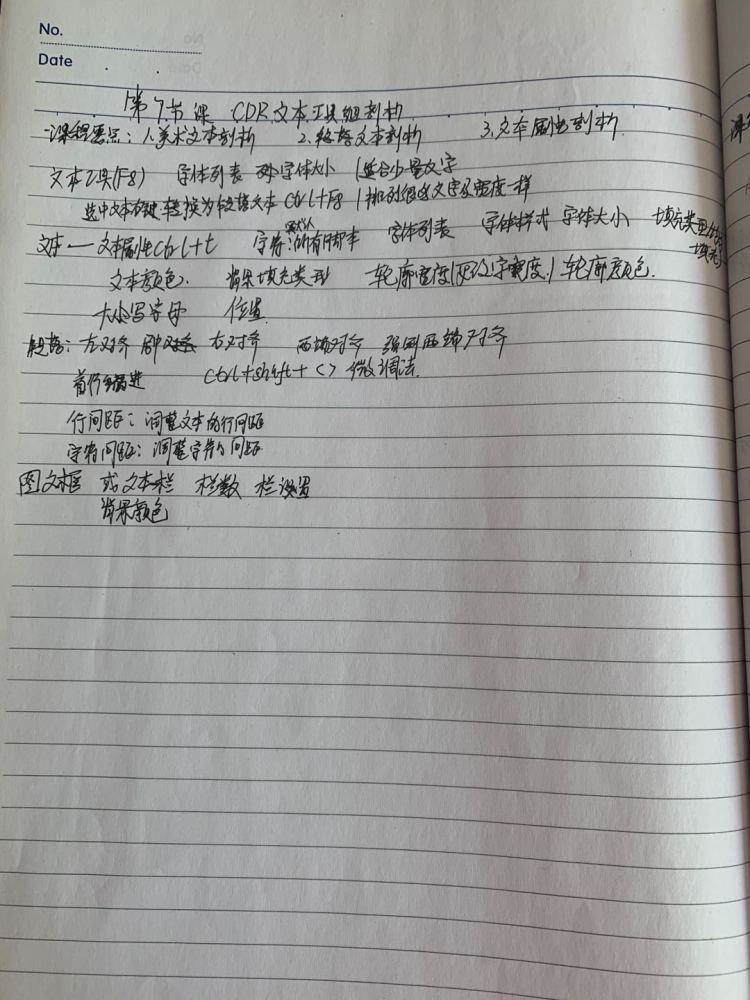 No.
Date
第7节课 CDR文本工具组剖析
课程要点：1.美术文本剖析 2.段落文本剖析 3.文本属性剖析
文本工具(F8) 字体列表 字体大小 适合少量文字
选中文本右键转换为段落文本 Ctrl+F8
文本——文本属性Ctrl+t 字符：默认 所有脚本 字体列表 字体样式 字体大小 填充类型
填充
文本颜色. 背景填充类型 轮廓宽度 轮廓颜色.
大小写字母 位置
段落：左对齐 居中对齐 右对齐 两端对齐 强制两端对齐
首行缩进 Ctrl+shift+<> 微调法.
行间距：调整文本的行间距
字符间距：调整字符的间距
图文框 或文本栏 栏数 栏设置
背景颜色